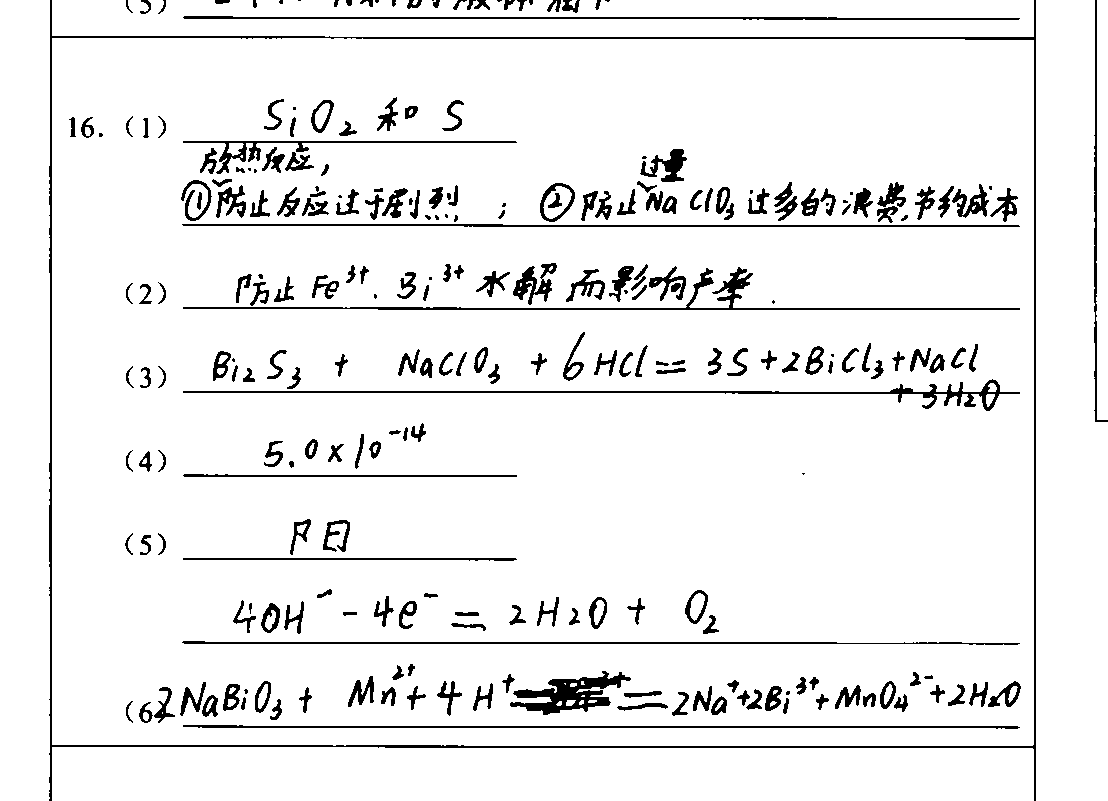 (5)
16. (1) SiO₂ 和 S
放热反应, 过量
①防止反应过于剧烈 ; ②防止NaClO₃过多的浪费,节约成本
(2) 防止Fe³⁺. Bi³⁺水解而影响产率.
(3) Bi₂S₃ + NaClO₃ + 6HCl = 3S+2BiCl₃+NaCl
+3H₂O
(4) 5.0×10⁻¹⁴
(5) 阳
4OH⁻ - 4e⁻ = 2H₂O + O₂
(6) 2NaBiO₃ + Mn²⁺+ 4H⁺ = 2Na⁺+2Bi³⁺+MnO₄²⁻+2H₂O